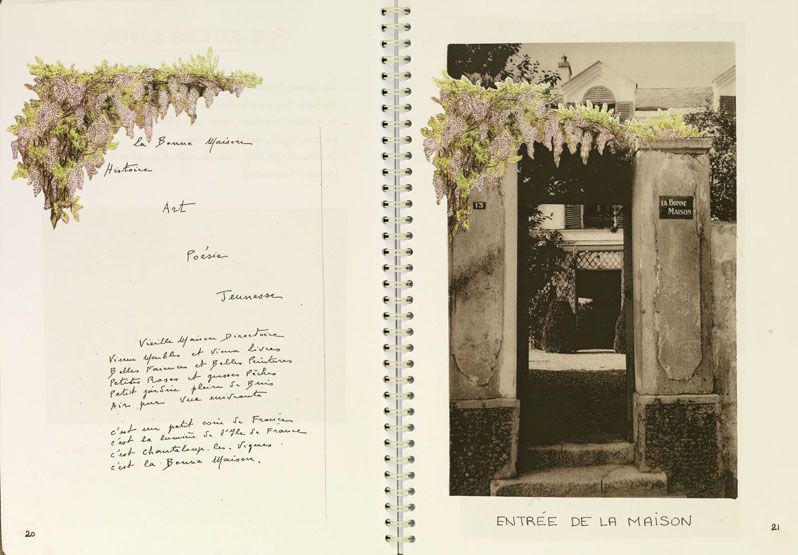 la Bonne Maison
Histoire
Art
Poésie
Jeunesse
Vieille Maison Directoire
Vieux Meubles et vieux livres
Belles Faïences et Belles Peintures
Petites Roses et grosses Pêches
Petit jardin plein de Buis
Air pur vue enivrante
c'est un petit coin de France
c'est la lumière de l'Ile de France
c'est Chanteloup-les-Vignes.
c'est la Bonne Maison.
20
RUE PAULINE BOYER
13
LA BONNE
MAISON
ENTRÉE DE LA MAISON
21